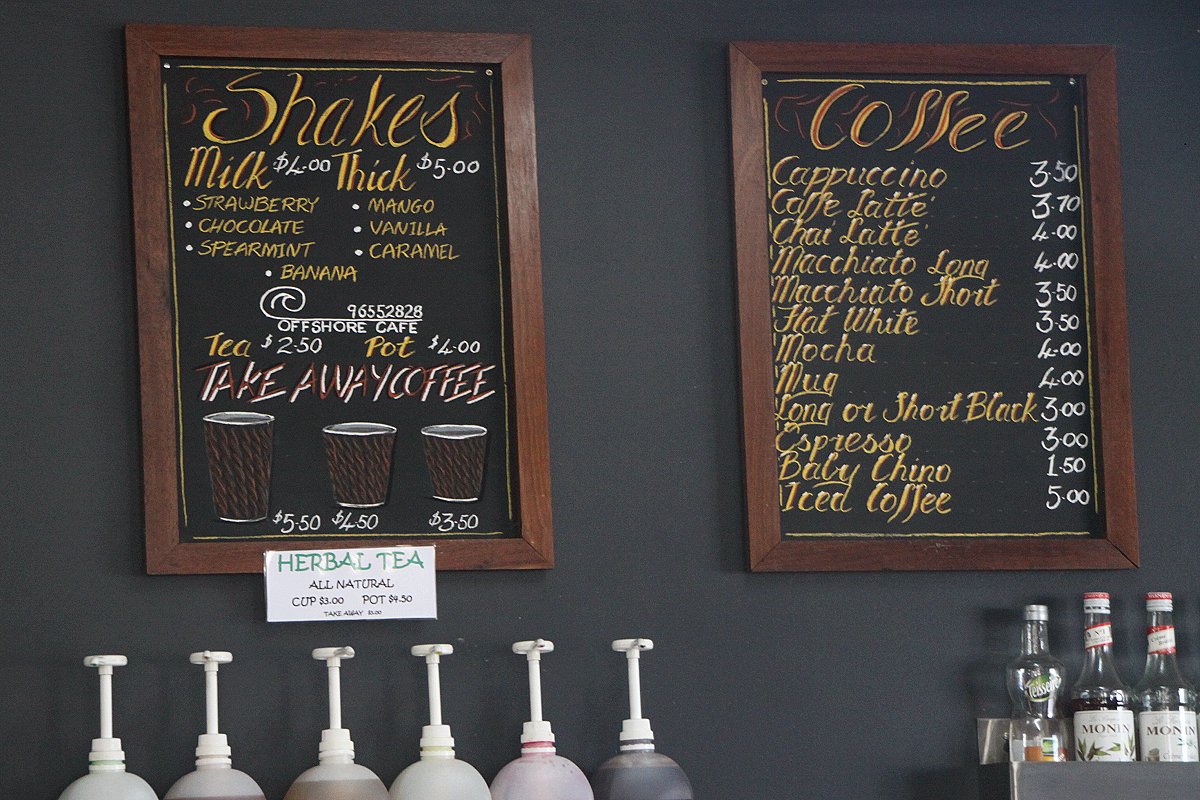 Shakes
Milk $4.00 Thick $5.00
• STRAWBERRY • MANGO
• CHOCOLATE • VANILLA
• SPEARMINT • CARAMEL
• BANANA
96552828
OFFSHORE CAFE
Tea $2.50 Pot $4.00
TAKE AWAY COFFEE
$5.50 $4.50 $3.50
HERBAL TEA
ALL NATURAL
CUP $3.00 POT $4.50
TAKE AWAY $3.00
Coffee
Cappuccino 3.50
Caffe Latte' 3.70
Chai Latte' 4.00
Macchiato Long 4.00
Macchiato Short 3.50
Flat White 3.50
Mocha 4.00
Mug 4.00
Long or Short Black 3.00
Espresso 3.00
Baby Chino 1.50
Iced Coffee 5.00
Teisseire
MONIN
MONIN